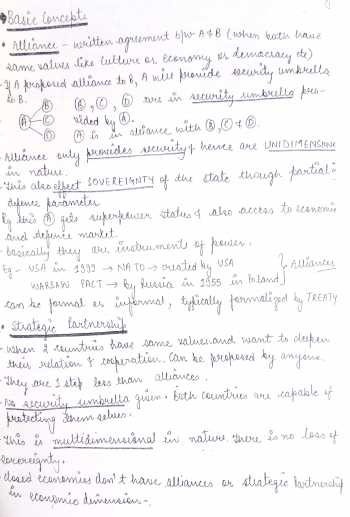 Basic Concepts
• Alliance - written agreement b/w A & B (when both have
same values like culture or economy or democracy etc)
- If A proposed alliance to B, A will provide security umbrella
to B.
A B C D
B, C, D are in security umbrella pro-
vided by A.
A is in alliance with B, C & D.
- Alliance only provides security & hence are UNIDIMENSIONAL
in nature.
- This also effect SOVEREIGNTY of the state though partial :
defence parameter
By this A gets superpower status & also access to economic
and defence market.
- basically they are instruments of power.
Eg - USA in 1999 → NATO → created by USA
WARSAW PACT → by Russia in 1955 in Poland } Alliances
can be formal or informal, typically formalized by TREATY
• Strategic Partnership
- when 2 countries have same values and want to deepen
their relation & cooperation. Can be proposed by anyone.
- They are 1 step less than alliances.
- No security umbrella given. Both countries are capable of
protecting themselves.
- This is multidimensional in nature. There is no loss of
sovereignty.
- closed economies don't have alliances or strategic partnership
in economic dimension -.